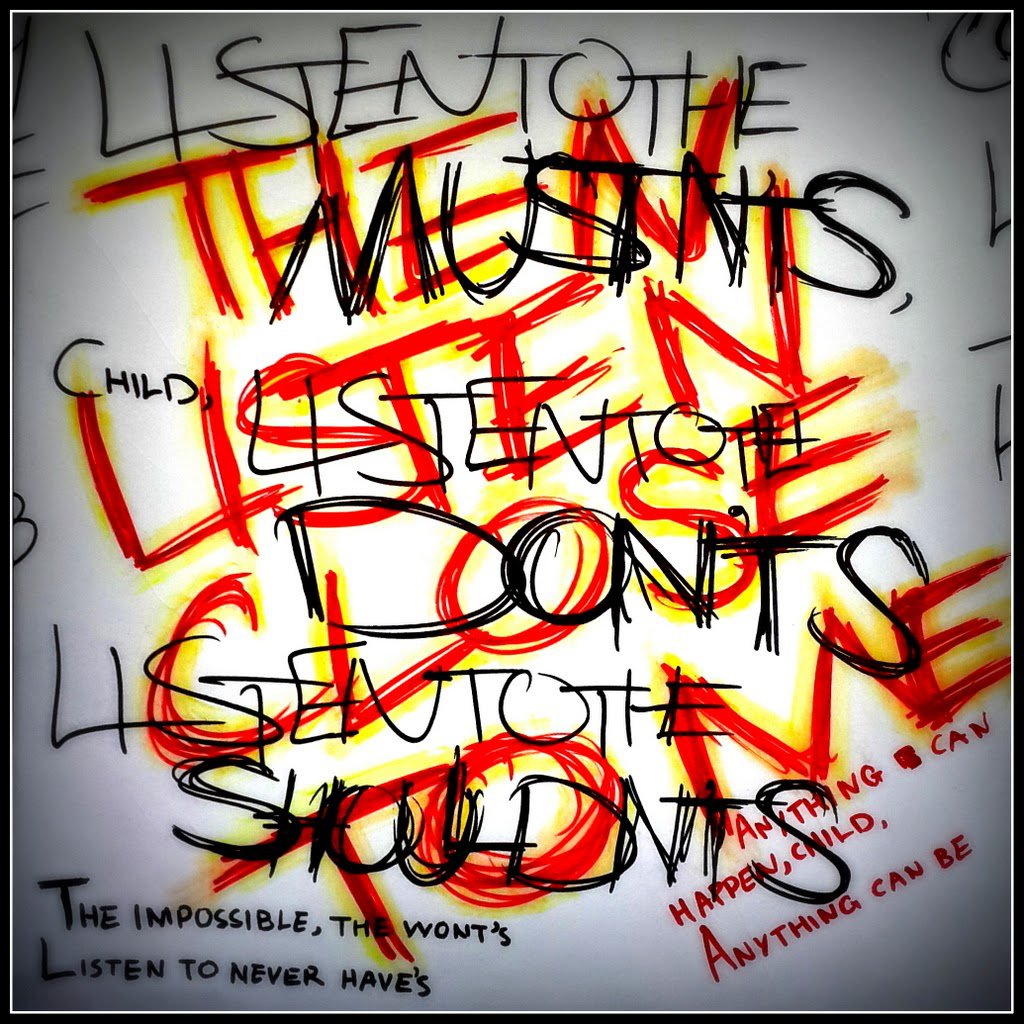 LISTEN TO THE
MUSTN'TS,
CHILD, LISTEN TO THE
DON'TS
LISTEN TO THE
SHOULDN'TS
THE IMPOSSIBLE, THE WONT'S
LISTEN TO NEVER HAVE'S
THEN
LISTEN
CLOSE
TO ME
ANYTHING CAN
HAPPEN, CHILD,
ANYTHING CAN BE